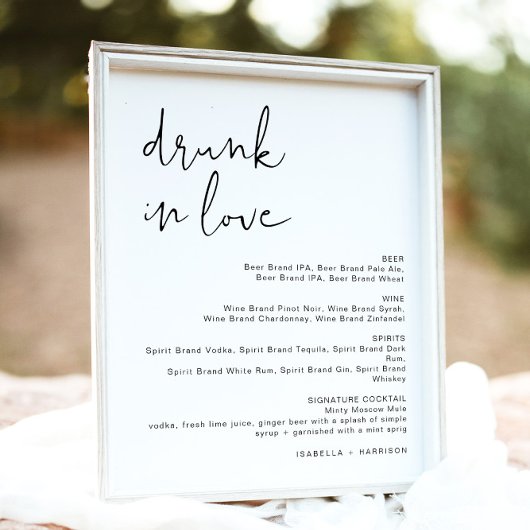 drunk
in love
BEER
Beer Brand IPA, Beer Brand Pale Ale,
Beer Brand IPA, Beer Brand Wheat
WINE
Wine Brand Pinot Noir, Wine Brand Syrah,
Wine Brand Chardonnay, Wine Brand Zinfandel
SPIRITS
Spirit Brand Vodka, Spirit Brand Tequila, Spirit Brand Dark
Rum,
Spirit Brand White Rum, Spirit Brand Gin, Spirit Brand
Whiskey
SIGNATURE COCKTAIL
Minty Moscow Mule
vodka, fresh lime juice, ginger beer with a splash of simple
syrup + garnished with a mint sprig
ISABELLA + HARRISON